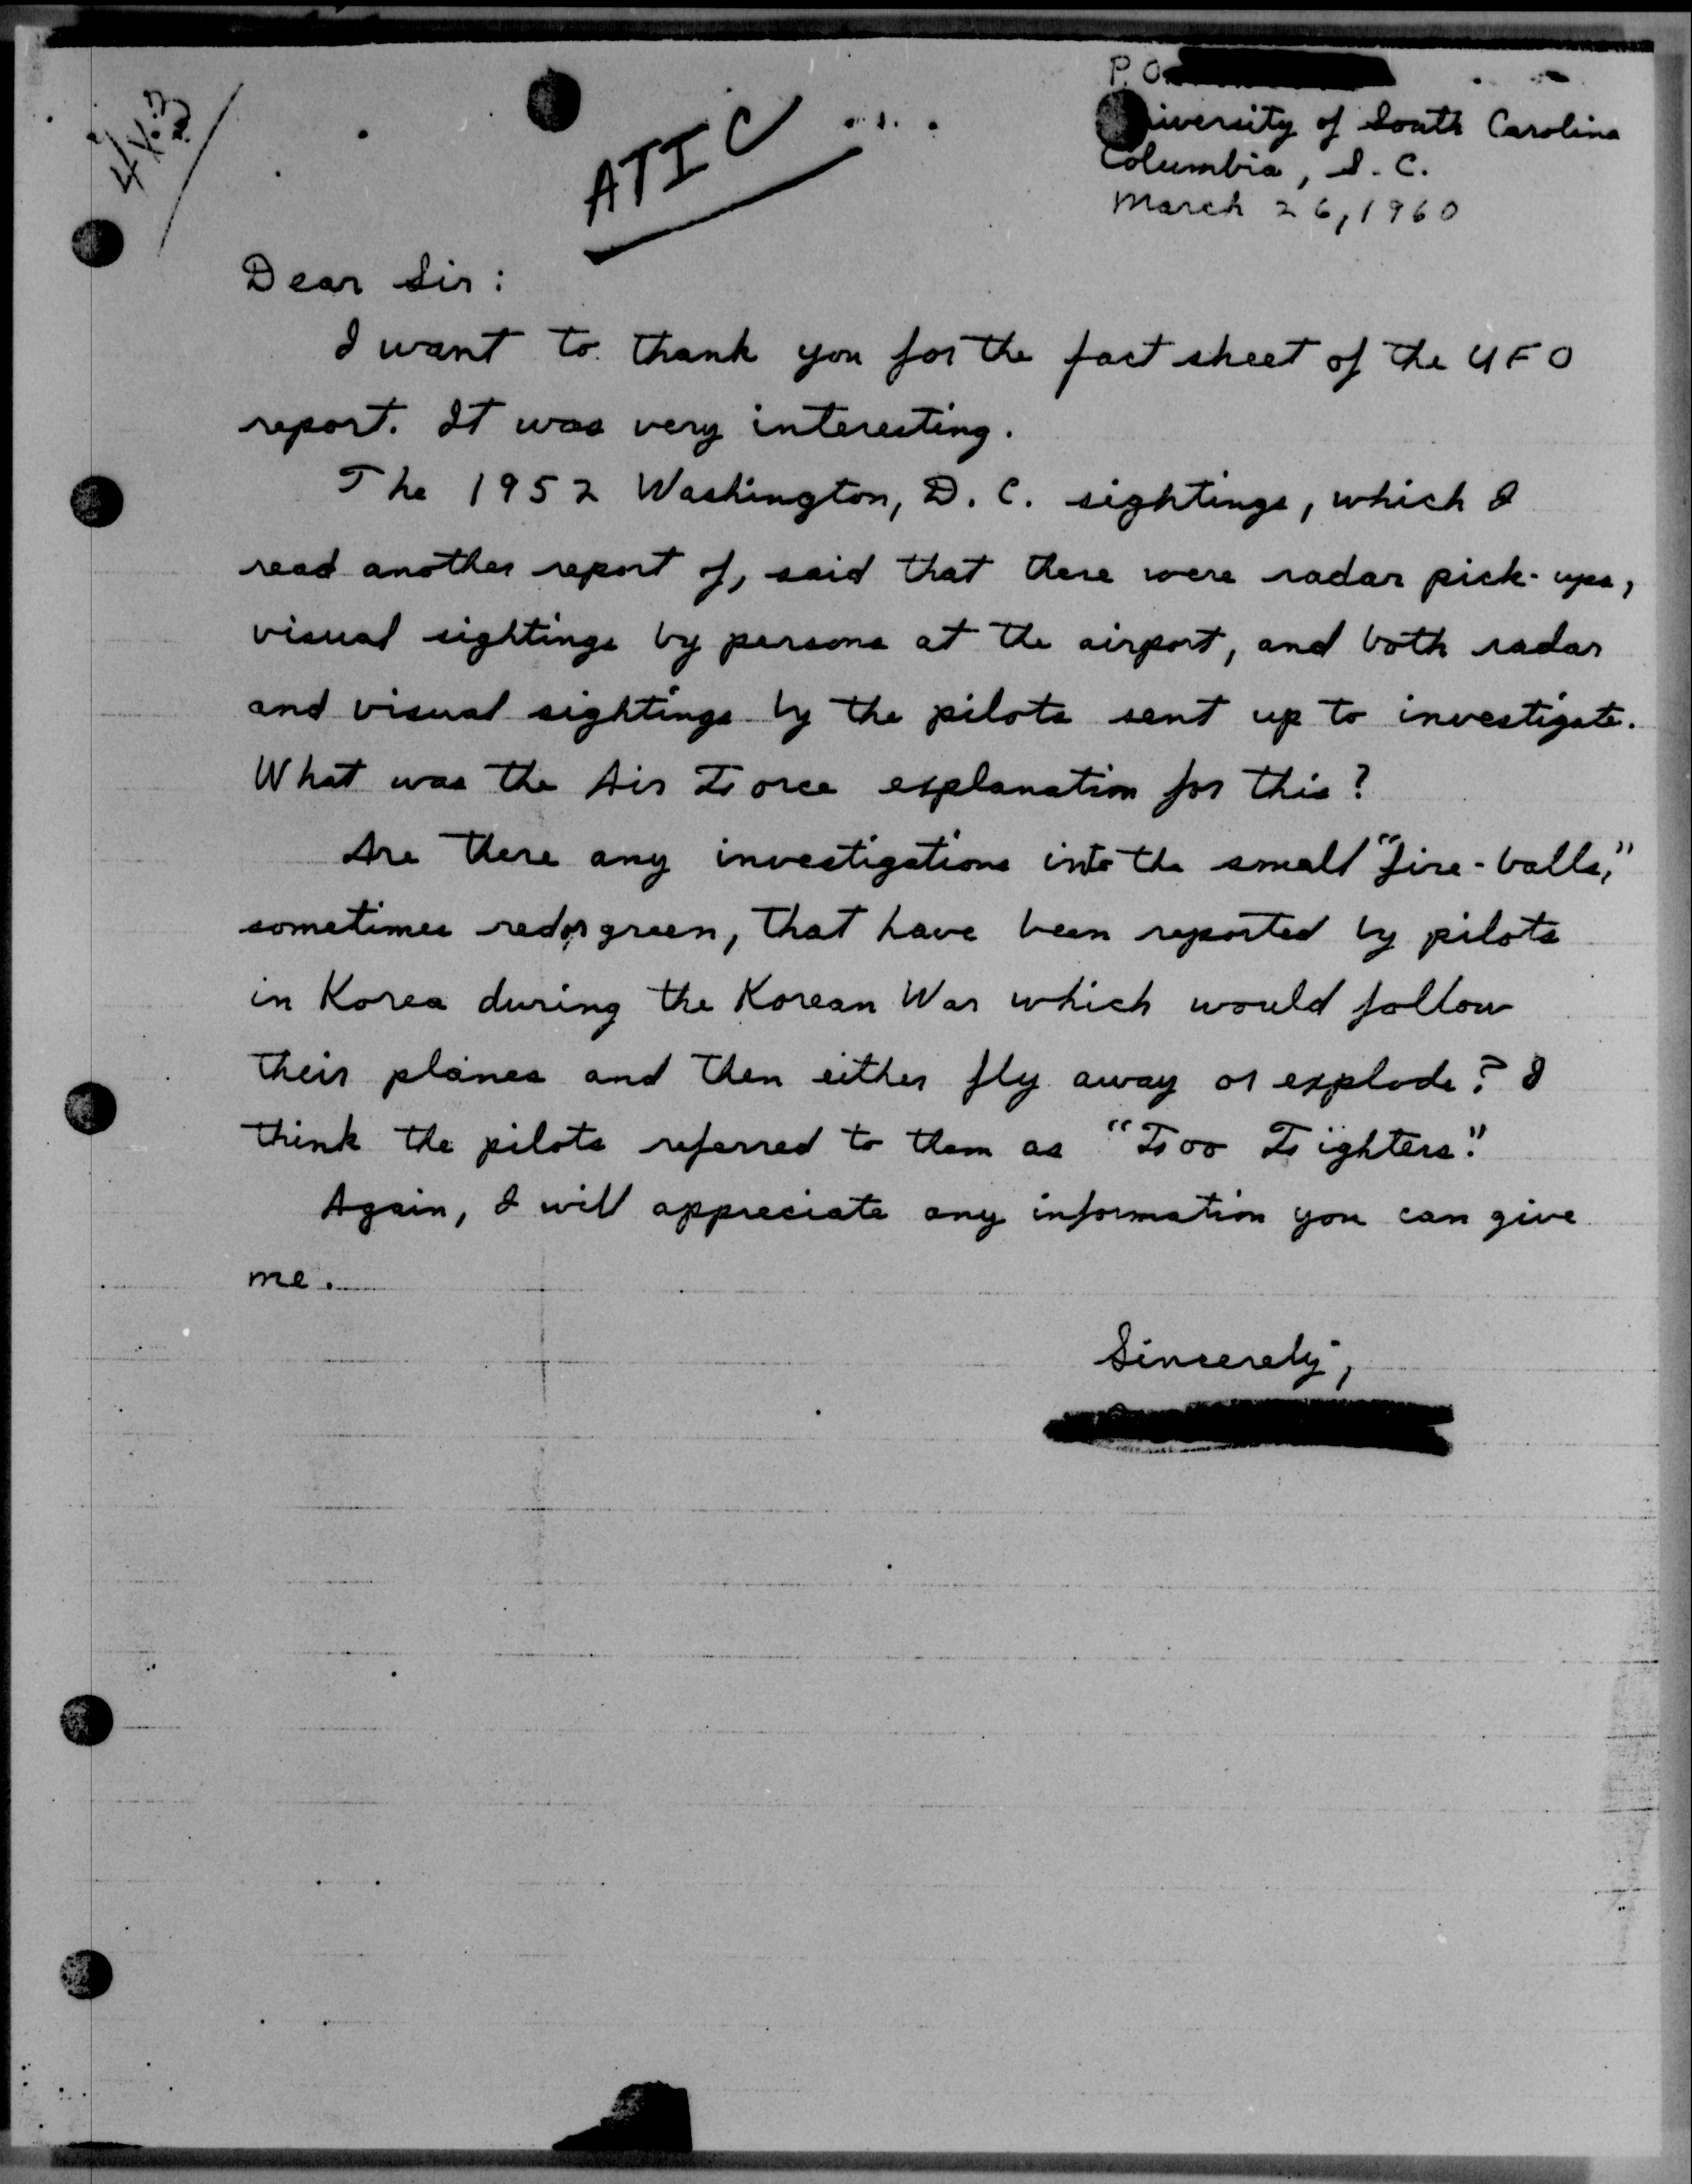 P.O.
University of South Carolina
Columbia, S.C.
March 26, 1960
ATIC
Dear Sir:
I want to thank you for the fact sheet of the UFO
report. It was very interesting.
The 1952 Washington, D.C. sightings, which I
read another report of, said that there were radar pick-ups,
visual sightings by persons at the airport, and both radar
and visual sightings by the pilots sent up to investigate.
What was the Air Force explanation for this?
Are there any investigations into the small "fire-balls,"
sometimes red or green, that have been reported by pilots
in Korea during the Korean War which would follow
their planes and then either fly away or explode? I
think the pilots referred to them as "Foo Fighters."
Again, I will appreciate any information you can give
me.
Sincerely,